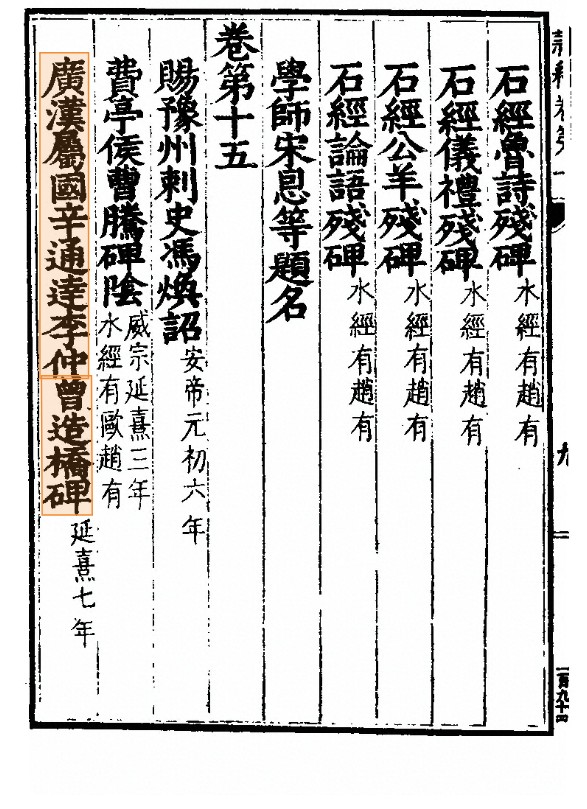 石經魯詩殘碑 水經有趙有
石經儀禮殘碑 水經有趙有
石經公羊殘碑 水經有趙有
石經論語殘碑 水經有趙有
學師宋恩等題名
卷第十五
賜豫州刺史馮煥詔 安帝元初六年
費亭侯曹騰碑陰 威宗延熹三年
水經有歐趙有
廣漢屬國辛通逹李仲曾造橋碑 延熹七年